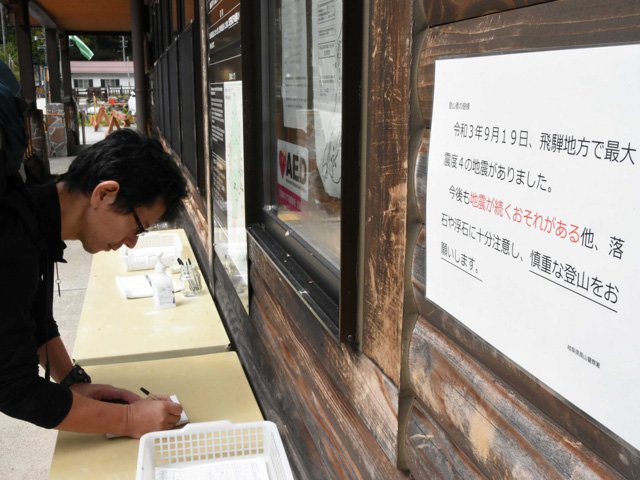 登山者の皆様
令和3年9月19日、飛騨地方で最大
震度4の地震がありました。
今後も地震が続くおそれがある他、落
石や浮石に十分注意し、慎重な登山をお
願いします。
岐阜県高山警察署
AED